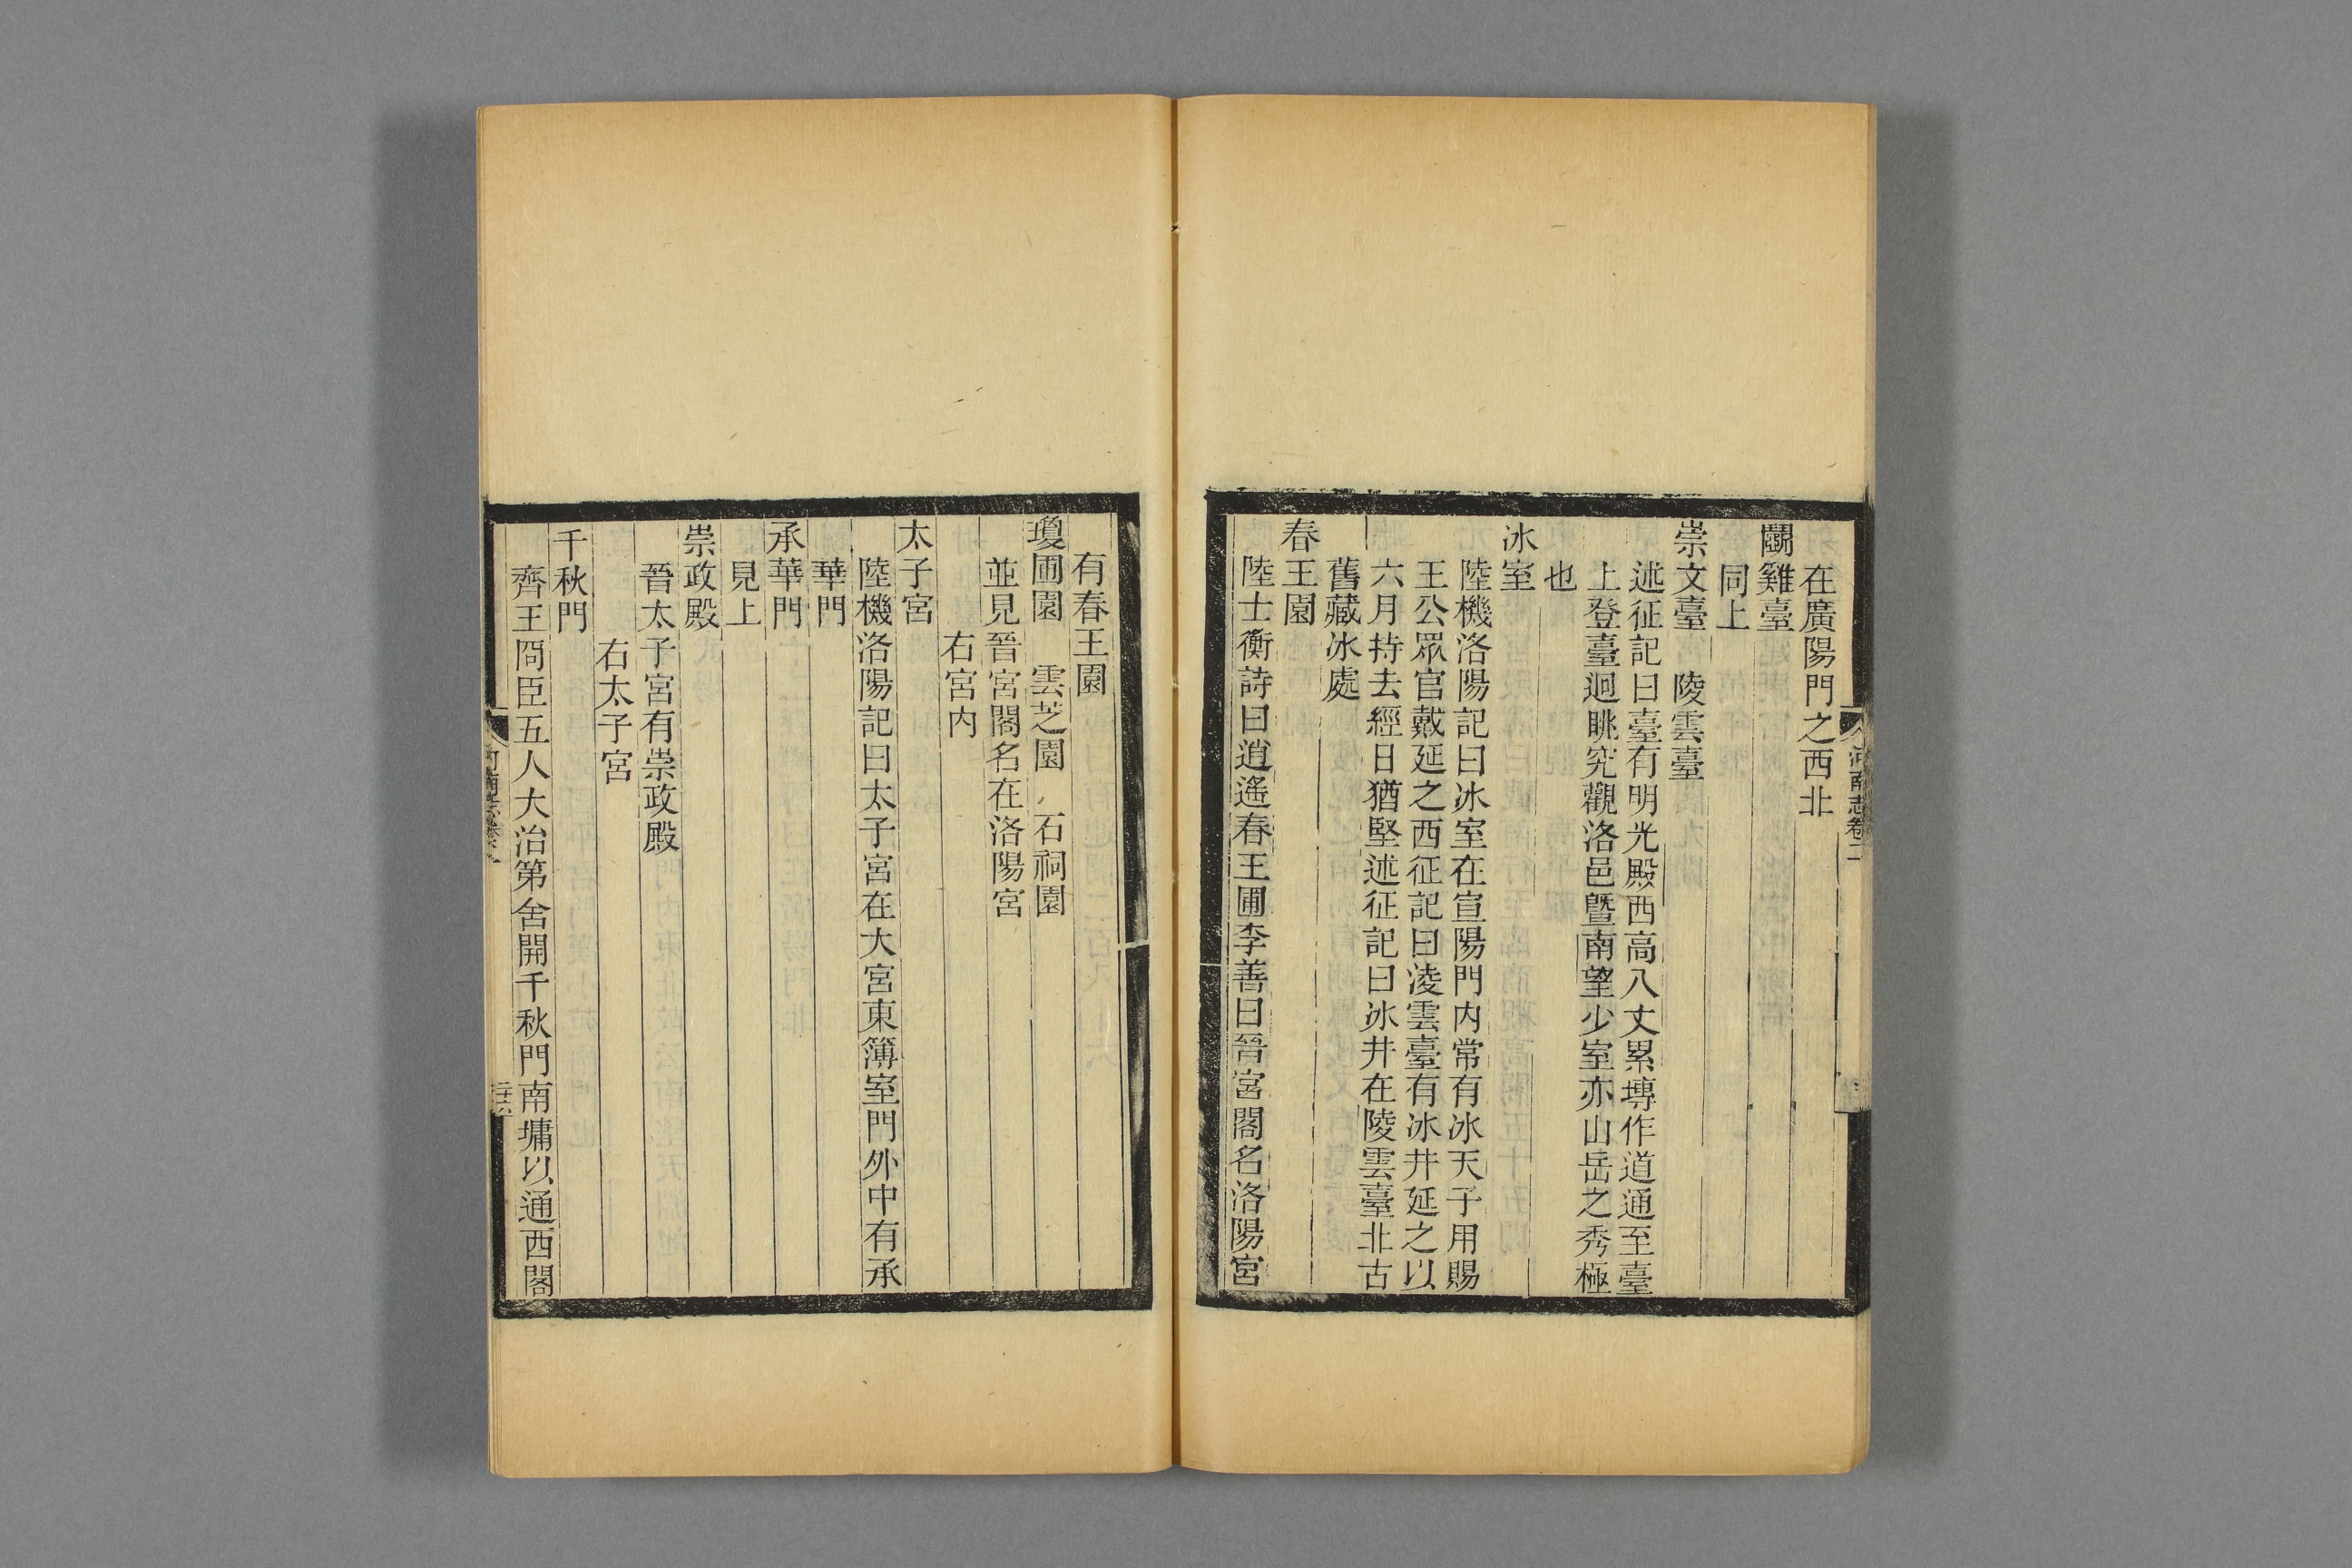 在廣陽門之西北
鬭雞臺
同上
崇文臺　陵雲臺
述征記曰臺有明光殿西高八丈累塼作道通至臺
上登臺迴眺究觀洛邑曁南望少室亦山岳之秀極
也
冰室
陸機洛陽記曰冰室在宣陽門内常有冰天子用賜
王公眾官戴延之西征記曰淩雲臺有冰井延之以
六月持去經日猶堅述征記曰冰井在陵雲臺北古
舊藏冰處
春王園
陸士衡詩曰逍遙春王圃李善曰晉宮閣名洛陽宮
河南志卷二
有春王園
瓊圃園　雲芝園　石祠園
並見晉宮閣名在洛陽宮
右宮内
太子宮
陸機洛陽記曰太子宮在大宮東簿室門外中有承
華門
承華門
見上
崇政殿
晉太子宮有崇政殿
右太子宮
千秋門
齊王冏臣五人大治第舍開千秋門南墉以通西閣